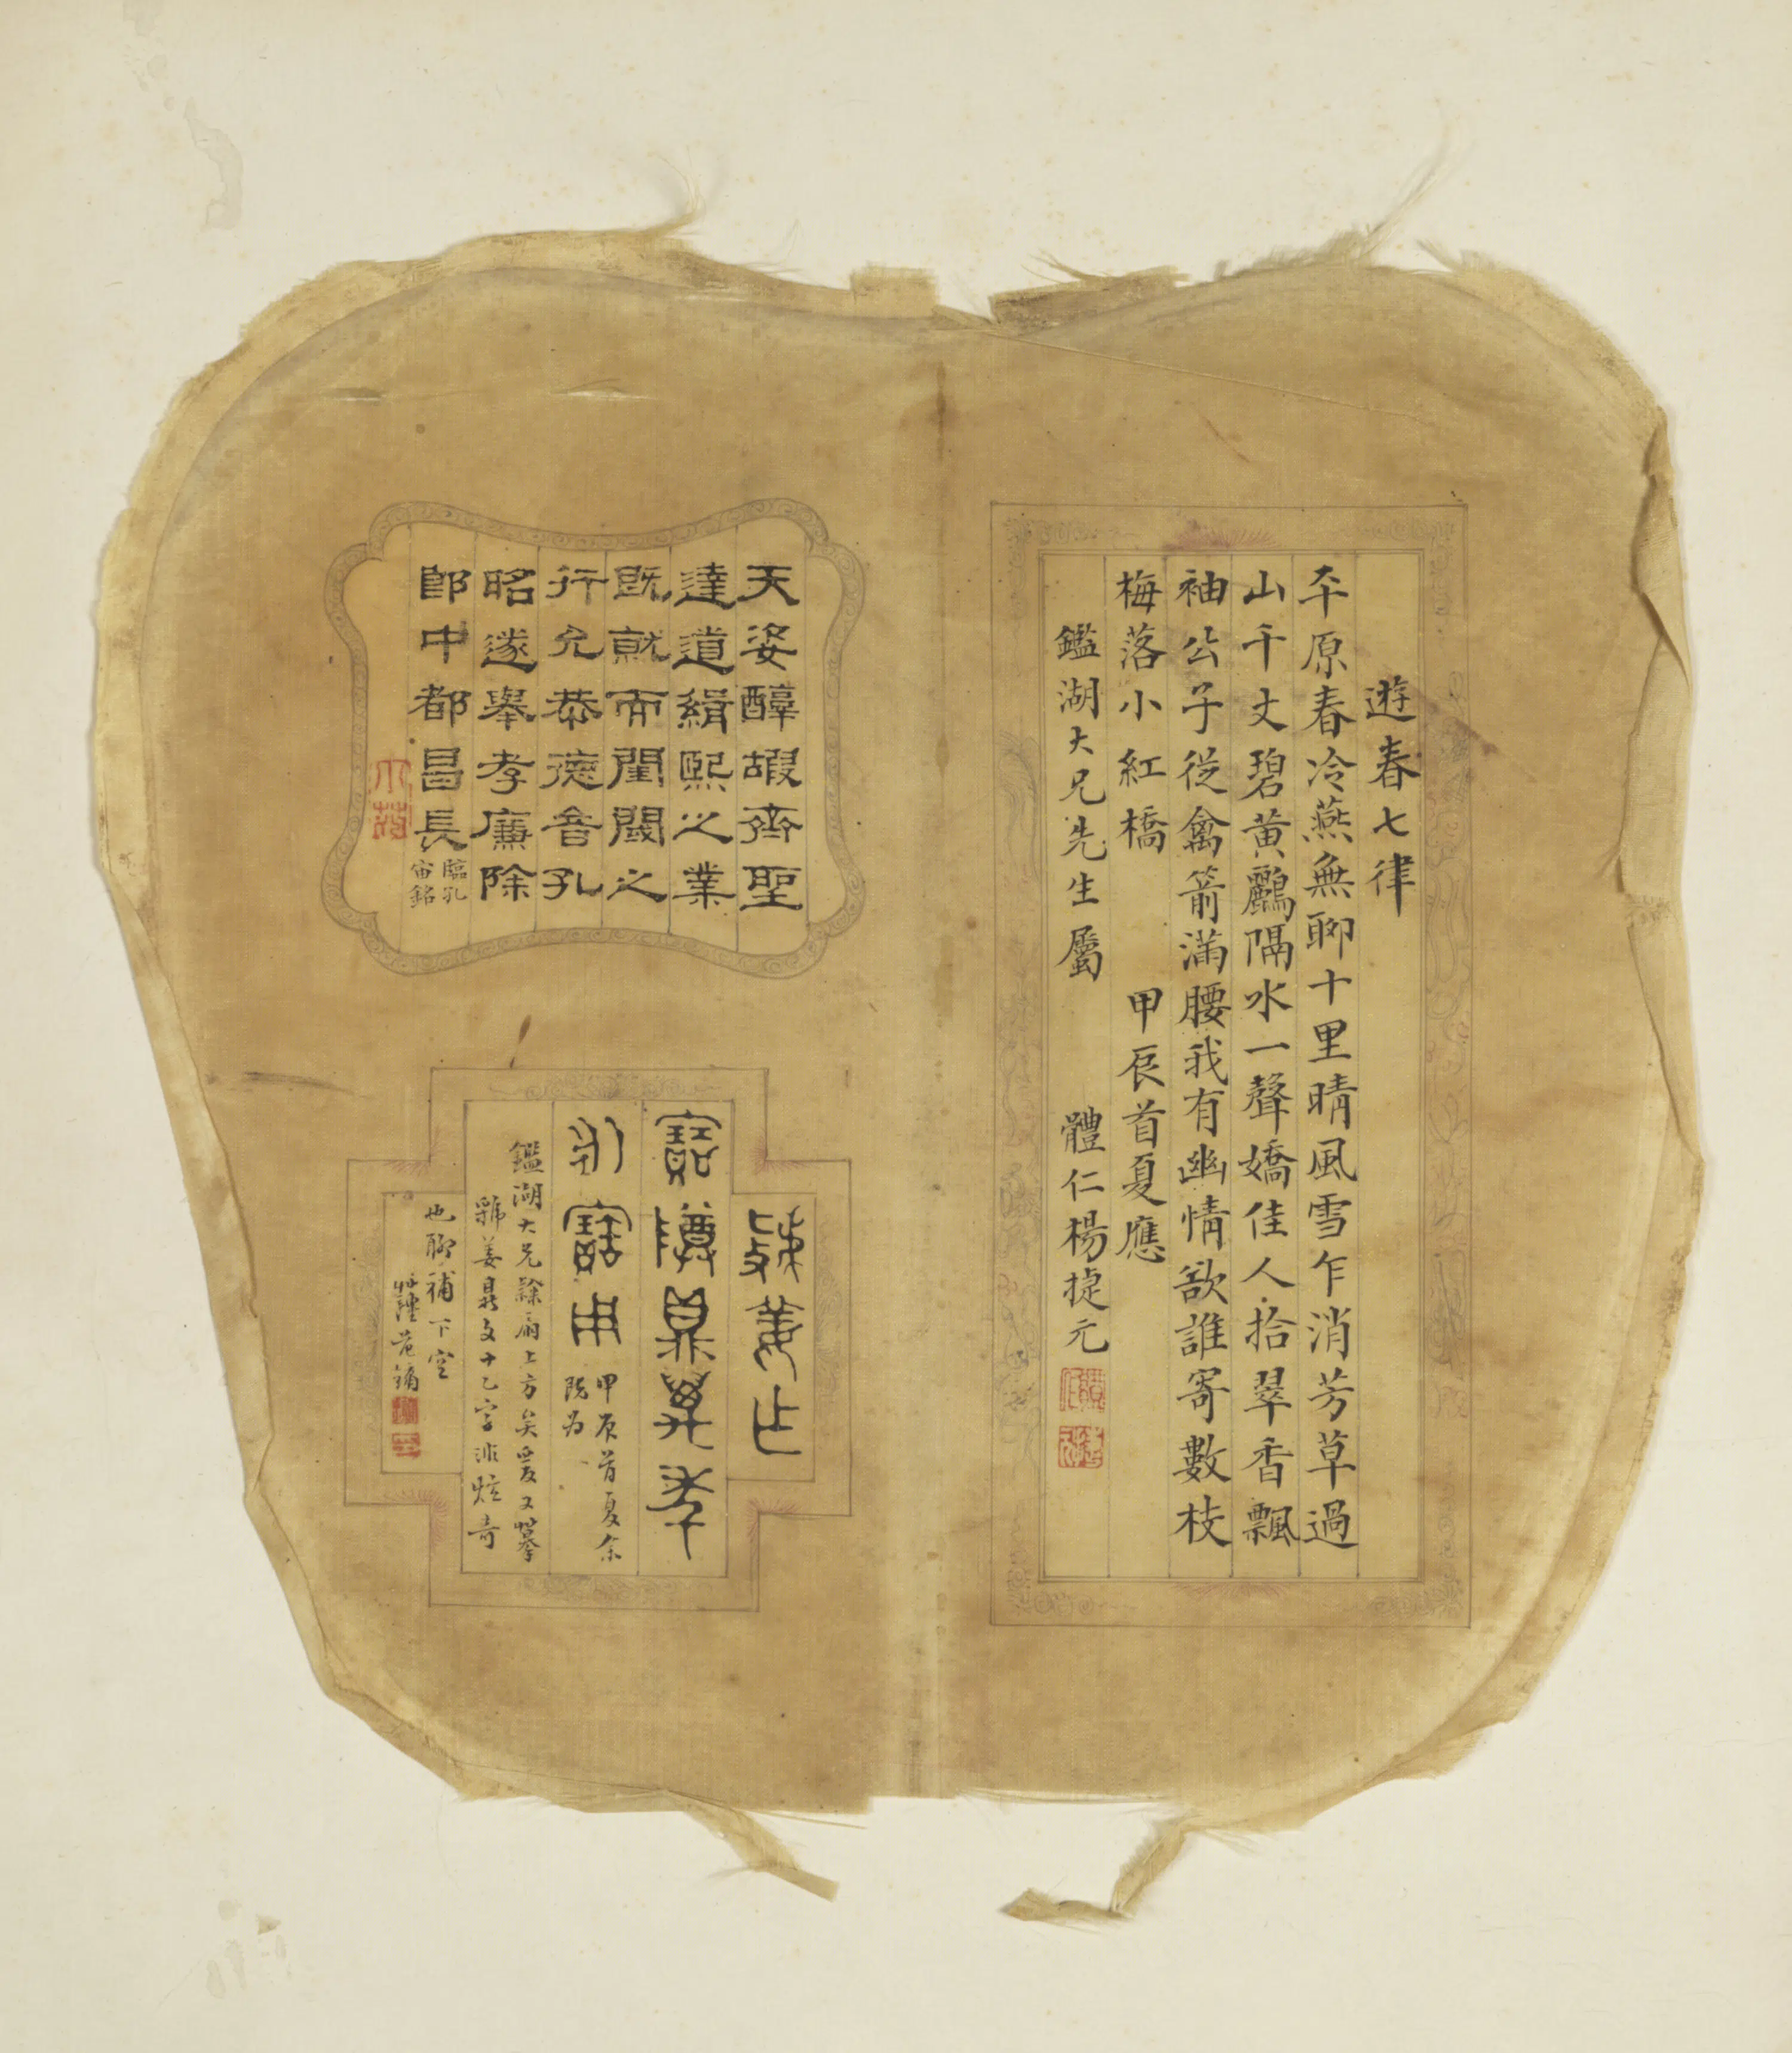 遊春七律
平原春冷燕無聊十里晴風雪乍消芳草過
山千丈碧黃鸝隔水一聲嬌佳人拾翠香飄
袖公子從禽箭滿腰我有幽情欲誰寄數枝
梅落小紅橋
甲辰首夏應
鑑湖大兄先生屬
體仁楊捷元
天姿醇嘏齊聖
達道緝熙之業
既就而閨閾之
行允恭德音孔
昭遂舉孝廉除
郎中都昌長
臨孔
宙銘
姜作
寶尊鼎其萬年
永寶用
甲辰首夏余
既為
鑑湖大兄隸扇上方矣爰又摹
虢姜鼎文十乙字非炫奇
也聊補下空
范鏞